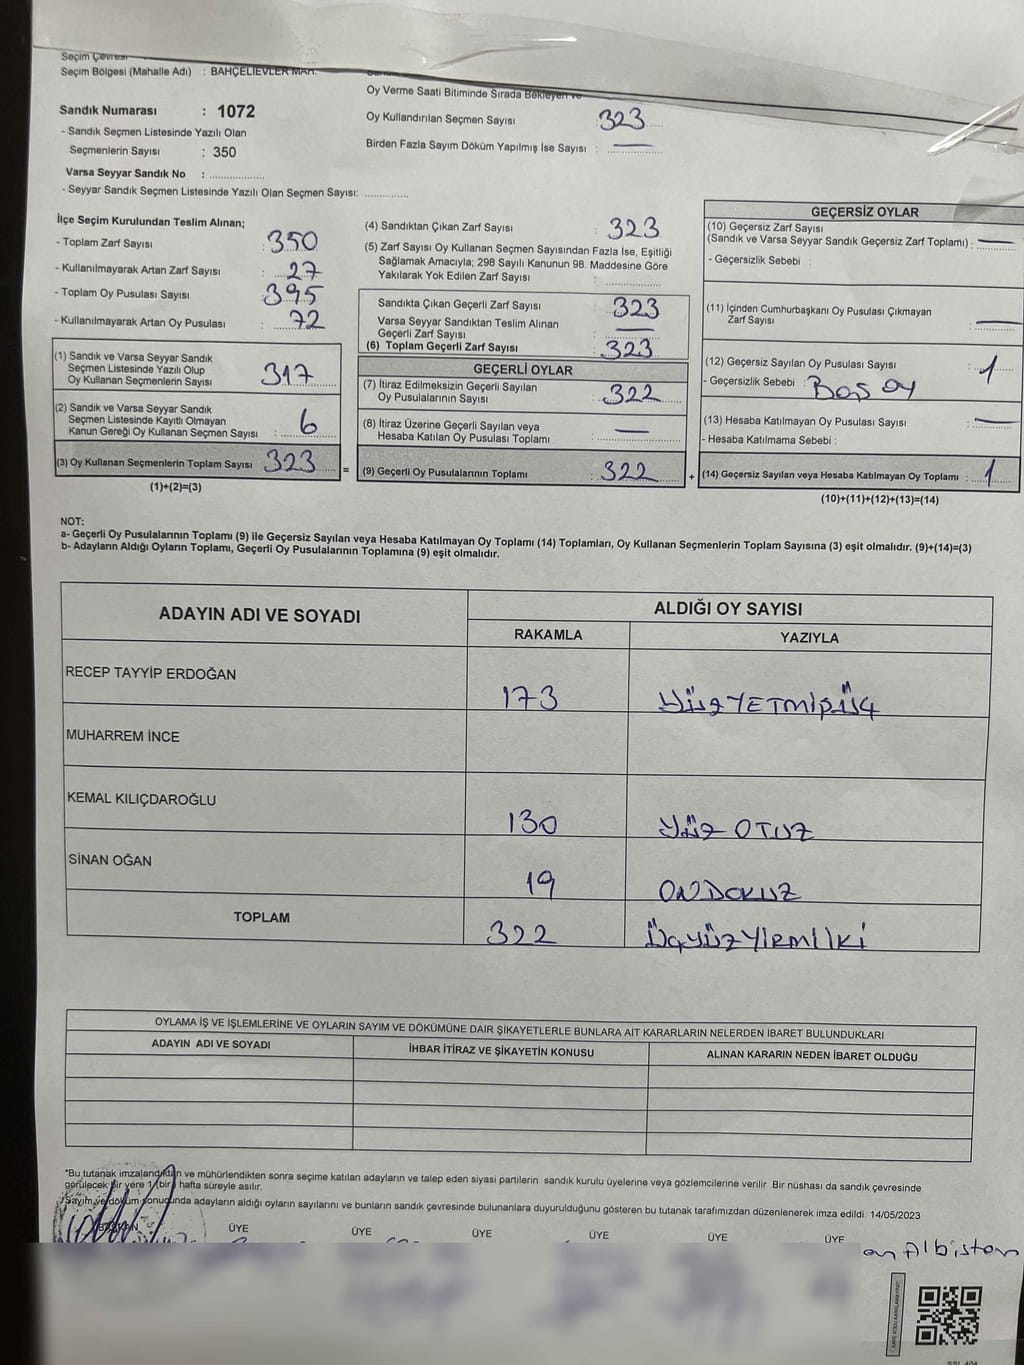 Seçim Çevresi
Seçim Bölgesi (Mahalle Adı) : BAHÇELİEVLER MAH.
Sandık Numarası : 1072
- Sandık Seçmen Listesinde Yazılı Olan
Seçmenlerin Sayısı : 350
Varsa Seyyar Sandık No :
- Seyyar Sandık Seçmen Listesinde Yazılı Olan Seçmen Sayısı:
Oy Verme Saati Bitiminde Sırada Bekleyen ve
Oy Kullandırılan Seçmen Sayısı 323
Birden Fazla Sayım Döküm Yapılmış İse Sayısı : —
İlçe Seçim Kurulundan Teslim Alınan;
- Toplam Zarf Sayısı : 350
- Kullanılmayarak Artan Zarf Sayısı : 27
- Toplam Oy Pusulası Sayısı : 395
- Kullanılmayarak Artan Oy Pusulası : 72
(1) Sandık ve Varsa Seyyar Sandık
Seçmen Listesinde Yazılı Olup
Oy Kullanan Seçmenlerin Sayısı : 317
(2) Sandık ve Varsa Seyyar Sandık
Seçmen Listesinde Kayıtlı Olmayan
Kanun Gereği Oy Kullanan Seçmen Sayısı : 6
(3) Oy Kullanan Seçmenlerin Toplam Sayısı 323 =
(1)+(2)=(3)
(4) Sandıktan Çıkan Zarf Sayısı : 323
(5) Zarf Sayısı Oy Kullanan Seçmen Sayısından Fazla İse, Eşitliği
Sağlamak Amacıyla; 298 Sayılı Kanunun 98. Maddesine Göre
Yakılarak Yok Edilen Zarf Sayısı :
Sandıkta Çıkan Geçerli Zarf Sayısı : 323
Varsa Seyyar Sandıktan Teslim Alınan
Geçerli Zarf Sayısı : —
(6) Toplam Geçerli Zarf Sayısı : 323
GEÇERLİ OYLAR
(7) İtiraz Edilmeksizin Geçerli Sayılan
Oy Pusulalarının Sayısı : 322
(8) İtiraz Üzerine Geçerli Sayılan veya
Hesaba Katılan Oy Pusulası Toplamı : —
(9) Geçerli Oy Pusulalarının Toplamı : 322 +
GEÇERSİZ OYLAR
(10) Geçersiz Zarf Sayısı
(Sandık ve Varsa Seyyar Sandık Geçersiz Zarf Toplamı) : —
- Geçersizlik Sebebi :
(11) İçinden Cumhurbaşkanı Oy Pusulası Çıkmayan
Zarf Sayısı : —
(12) Geçersiz Sayılan Oy Pusulası Sayısı : 1
- Geçersizlik Sebebi : Boş oy
(13) Hesaba Katılmayan Oy Pusulası Sayısı : —
- Hesaba Katılmama Sebebi :
(14) Geçersiz Sayılan veya Hesaba Katılmayan Oy Toplamı : 1
(10)+(11)+(12)+(13)=(14)
NOT:
a- Geçerli Oy Pusulalarının Toplamı (9) ile Geçersiz Sayılan veya Hesaba Katılmayan Oy Toplamı (14) Toplamları, Oy Kullanan Seçmenlerin Toplam Sayısına (3) eşit olmalıdır. (9)+(14)=(3)
b- Adayların Aldığı Oyların Toplamı, Geçerli Oy Pusulalarının Toplamına (9) eşit olmalıdır.
ADAYIN ADI VE SOYADI
ALDIĞI OY SAYISI
RAKAMLA YAZIYLA
RECEP TAYYİP ERDOĞAN 173 YüzYETmişüç
MUHARREM İNCE
KEMAL KILIÇDAROĞLU 130 Yüz OTUZ
SİNAN OĞAN 19 ONDOKUZ
TOPLAM 322 ÜçyüzYirmiiKi
OYLAMA İŞ VE İŞLEMLERİNE VE OYLARIN SAYIM VE DÖKÜMÜNE DAİR ŞİKAYETLERLE BUNLARA AİT KARARLARIN NELERDEN İBARET BULUNDUKLARI
ADAYIN ADI VE SOYADI İHBAR İTİRAZ VE ŞİKAYETİN KONUSU ALINAN KARARIN NEDEN İBARET OLDUĞU
*Bu tutanak imzalandıktan ve mühürlendikten sonra seçime katılan adayların ve talep eden siyasi partilerin sandık kurulu üyelerine veya gözlemcilerine verilir. Bir nüshası da sandık çevresinde
görülecek bir yere 1 (bir) hafta süreyle asılır.
Sayım ve döküm sonucunda adayların aldığı oyların sayılarını ve bunların sandık çevresinde bulunanlara duyurulduğunu gösteren bu tutanak tarafımızdan düzenlenerek imza edildi. 14/05/2023
BAŞKAN ÜYE ÜYE ÜYE ÜYE ÜYE ÜYE
an Albiston